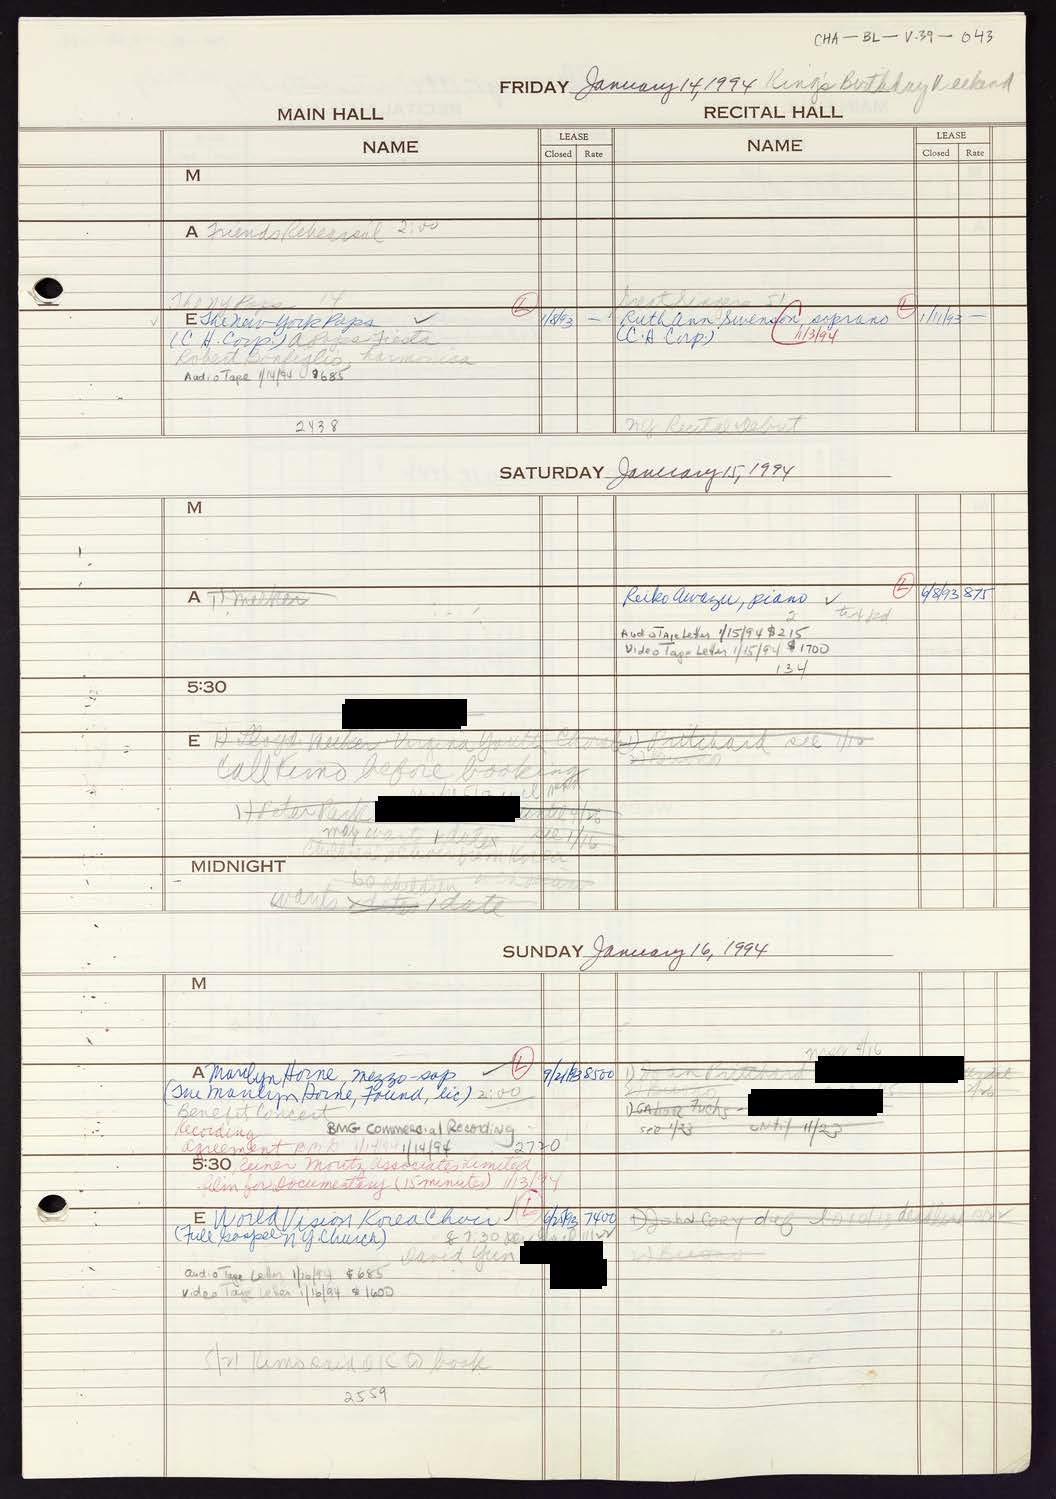 CHA-BL-V.39-043
FRIDAY January 14, 1994 King's Birthday Weekend
MAIN HALL
RECITAL HALL
NAME
LEASE
Closed Rate
NAME
LEASE
Closed Rate
M
A Friends Rehearsal 2:00
The NY Pops 14
E The New York Pops ✓ L 1/8/93 —
(C.H. Corp.) A Pops Fiesta
Robert Bonfiglio, harmonica
Audio Tape 1/14/94 $685
2438
Ruth Ann Swenson, soprano L 1/11/93 —
(C.H. Corp.) 1/3/94
NY Recital Debut
SATURDAY January 15, 1994
M
A
Reiko Awazu, piano ✓ L 6/8/93 875
2
Audio Tape Letter 1/15/94 $215
Video Tape Letter 1/15/94 $1700
134
5:30
E 1) Lloyd Virginia Youth
Call Kimo before booking
1) Peter Park
may want 1 date see 1/16
from Korea
60 children
MIDNIGHT
wants dates 1 date
1) Pritchard see 1/10
SUNDAY January 16, 1994
M
A Marilyn Horne, mezzo-sop ✓ L 9/21/93 8500
(The Marilyn Horne, Found, lic) 2:00
Benefit Concert
Recording BMG Commercial Recording
agreement 1/14/94 1/14/94 2720
5:30 Reiner Moritz Associates Limited
film for Documentary (15 minutes) 1/13/94
1) Pritchard
1) Gabor Fuchs -
see 1/23 until 11/23
E World Vision Korea Choir L 6/25/93 7400
(Full Gospel NY Church) 7:30
David Yun
Audio Tape Letter 1/16/94 $685
Video Tape Letter 1/16/94 $1600
5/21 Kimo said OK to book
2559
1) John Cory